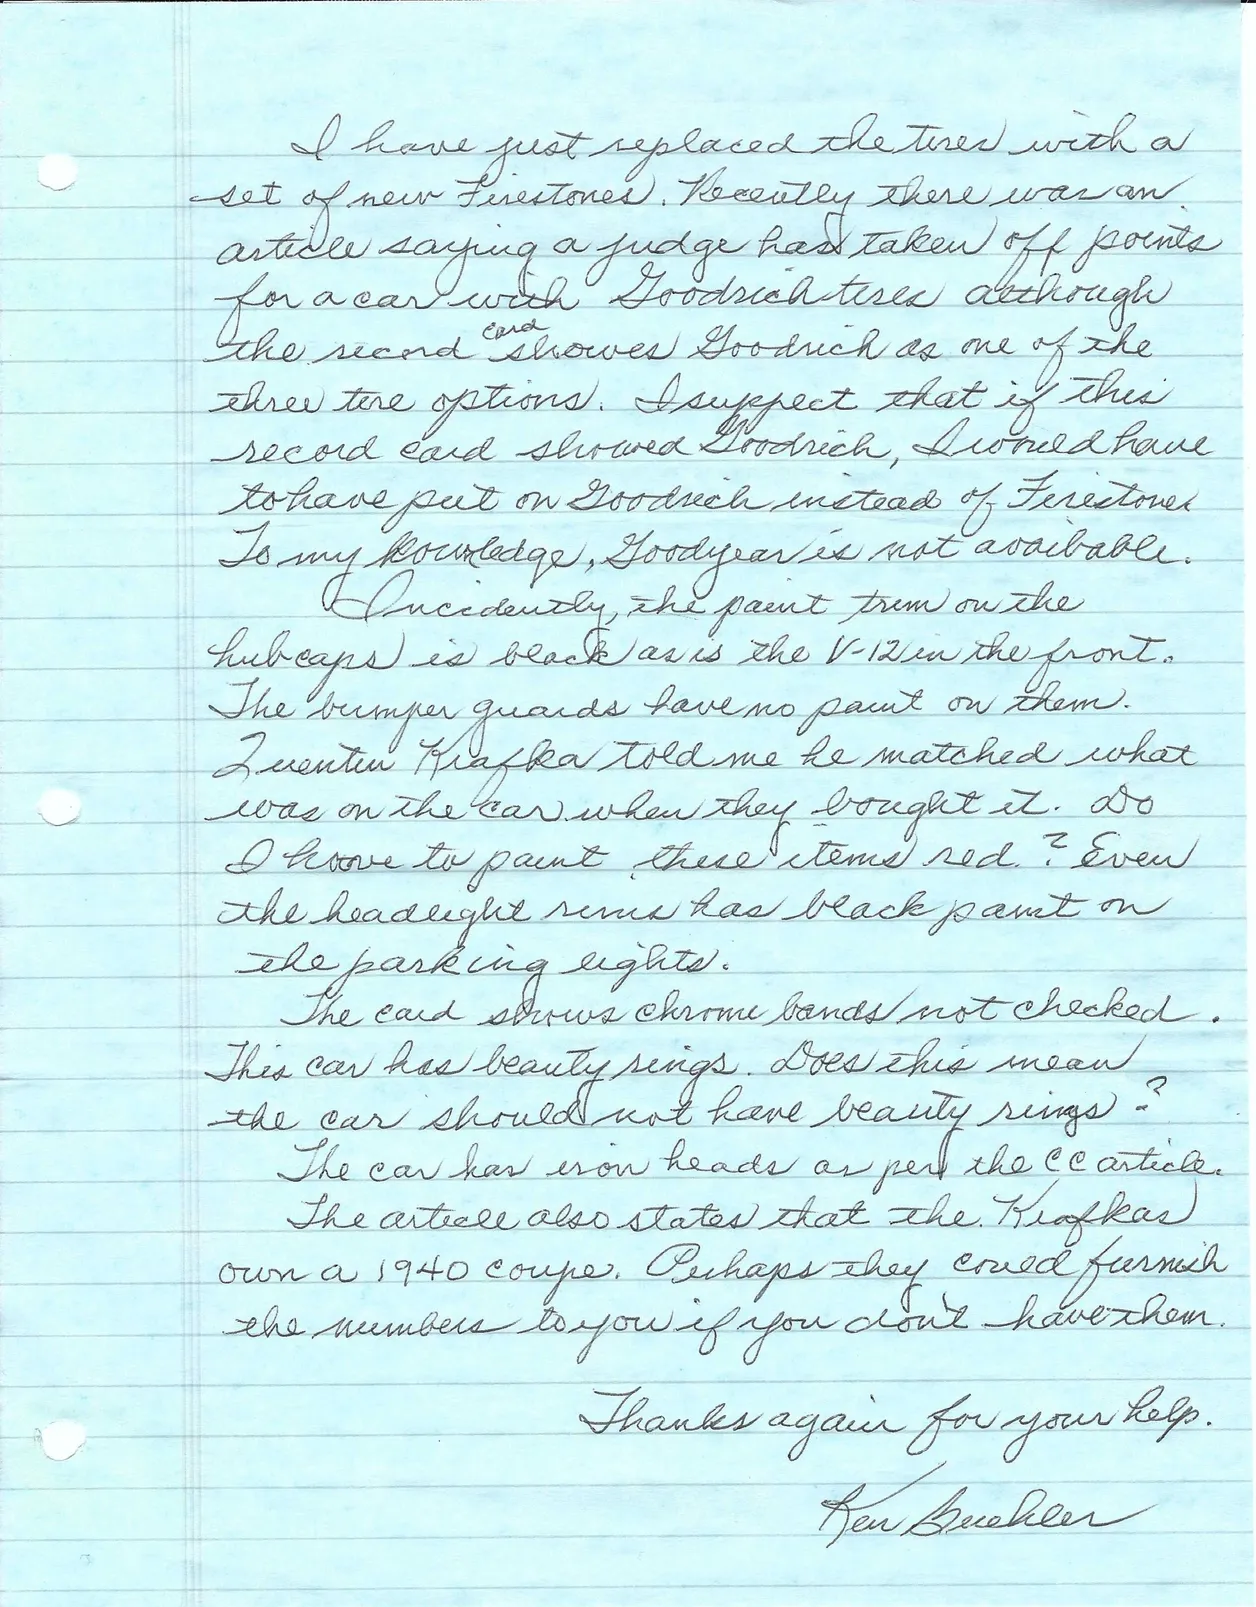 I have just replaced the tires with a
set of new Firestones. Recently there was an
article saying a judge has taken off points
for a car with Goodrich tires although
card
the record showes Goodrich as one of the
three tire options. I suppect that if this
record card showed Goodrich, I would have
to have put on Goodrich instead of Firestones
To my knowledge, Goodyear is not available.
Incidently, the paint trim on the
hubcaps is black as is the V-12 in the front.
The bumper guards have no paint on them.
Quentin Krafka told me he matched what
was on the car when they bought it. Do
I have to paint these items red? Even
the headlight rims has black paint on
the parking lights.
The card shows chrome bands not checked.
This car has beauty rings. Does this mean
the car should not have beauty rings?
The car has iron heads as per the CC article.
The article also states that the Krafkas
own a 1940 coupe. Perhaps they could furnish
the numbers to you if you don't have them.
Thanks again for your help.
Ken Buehler